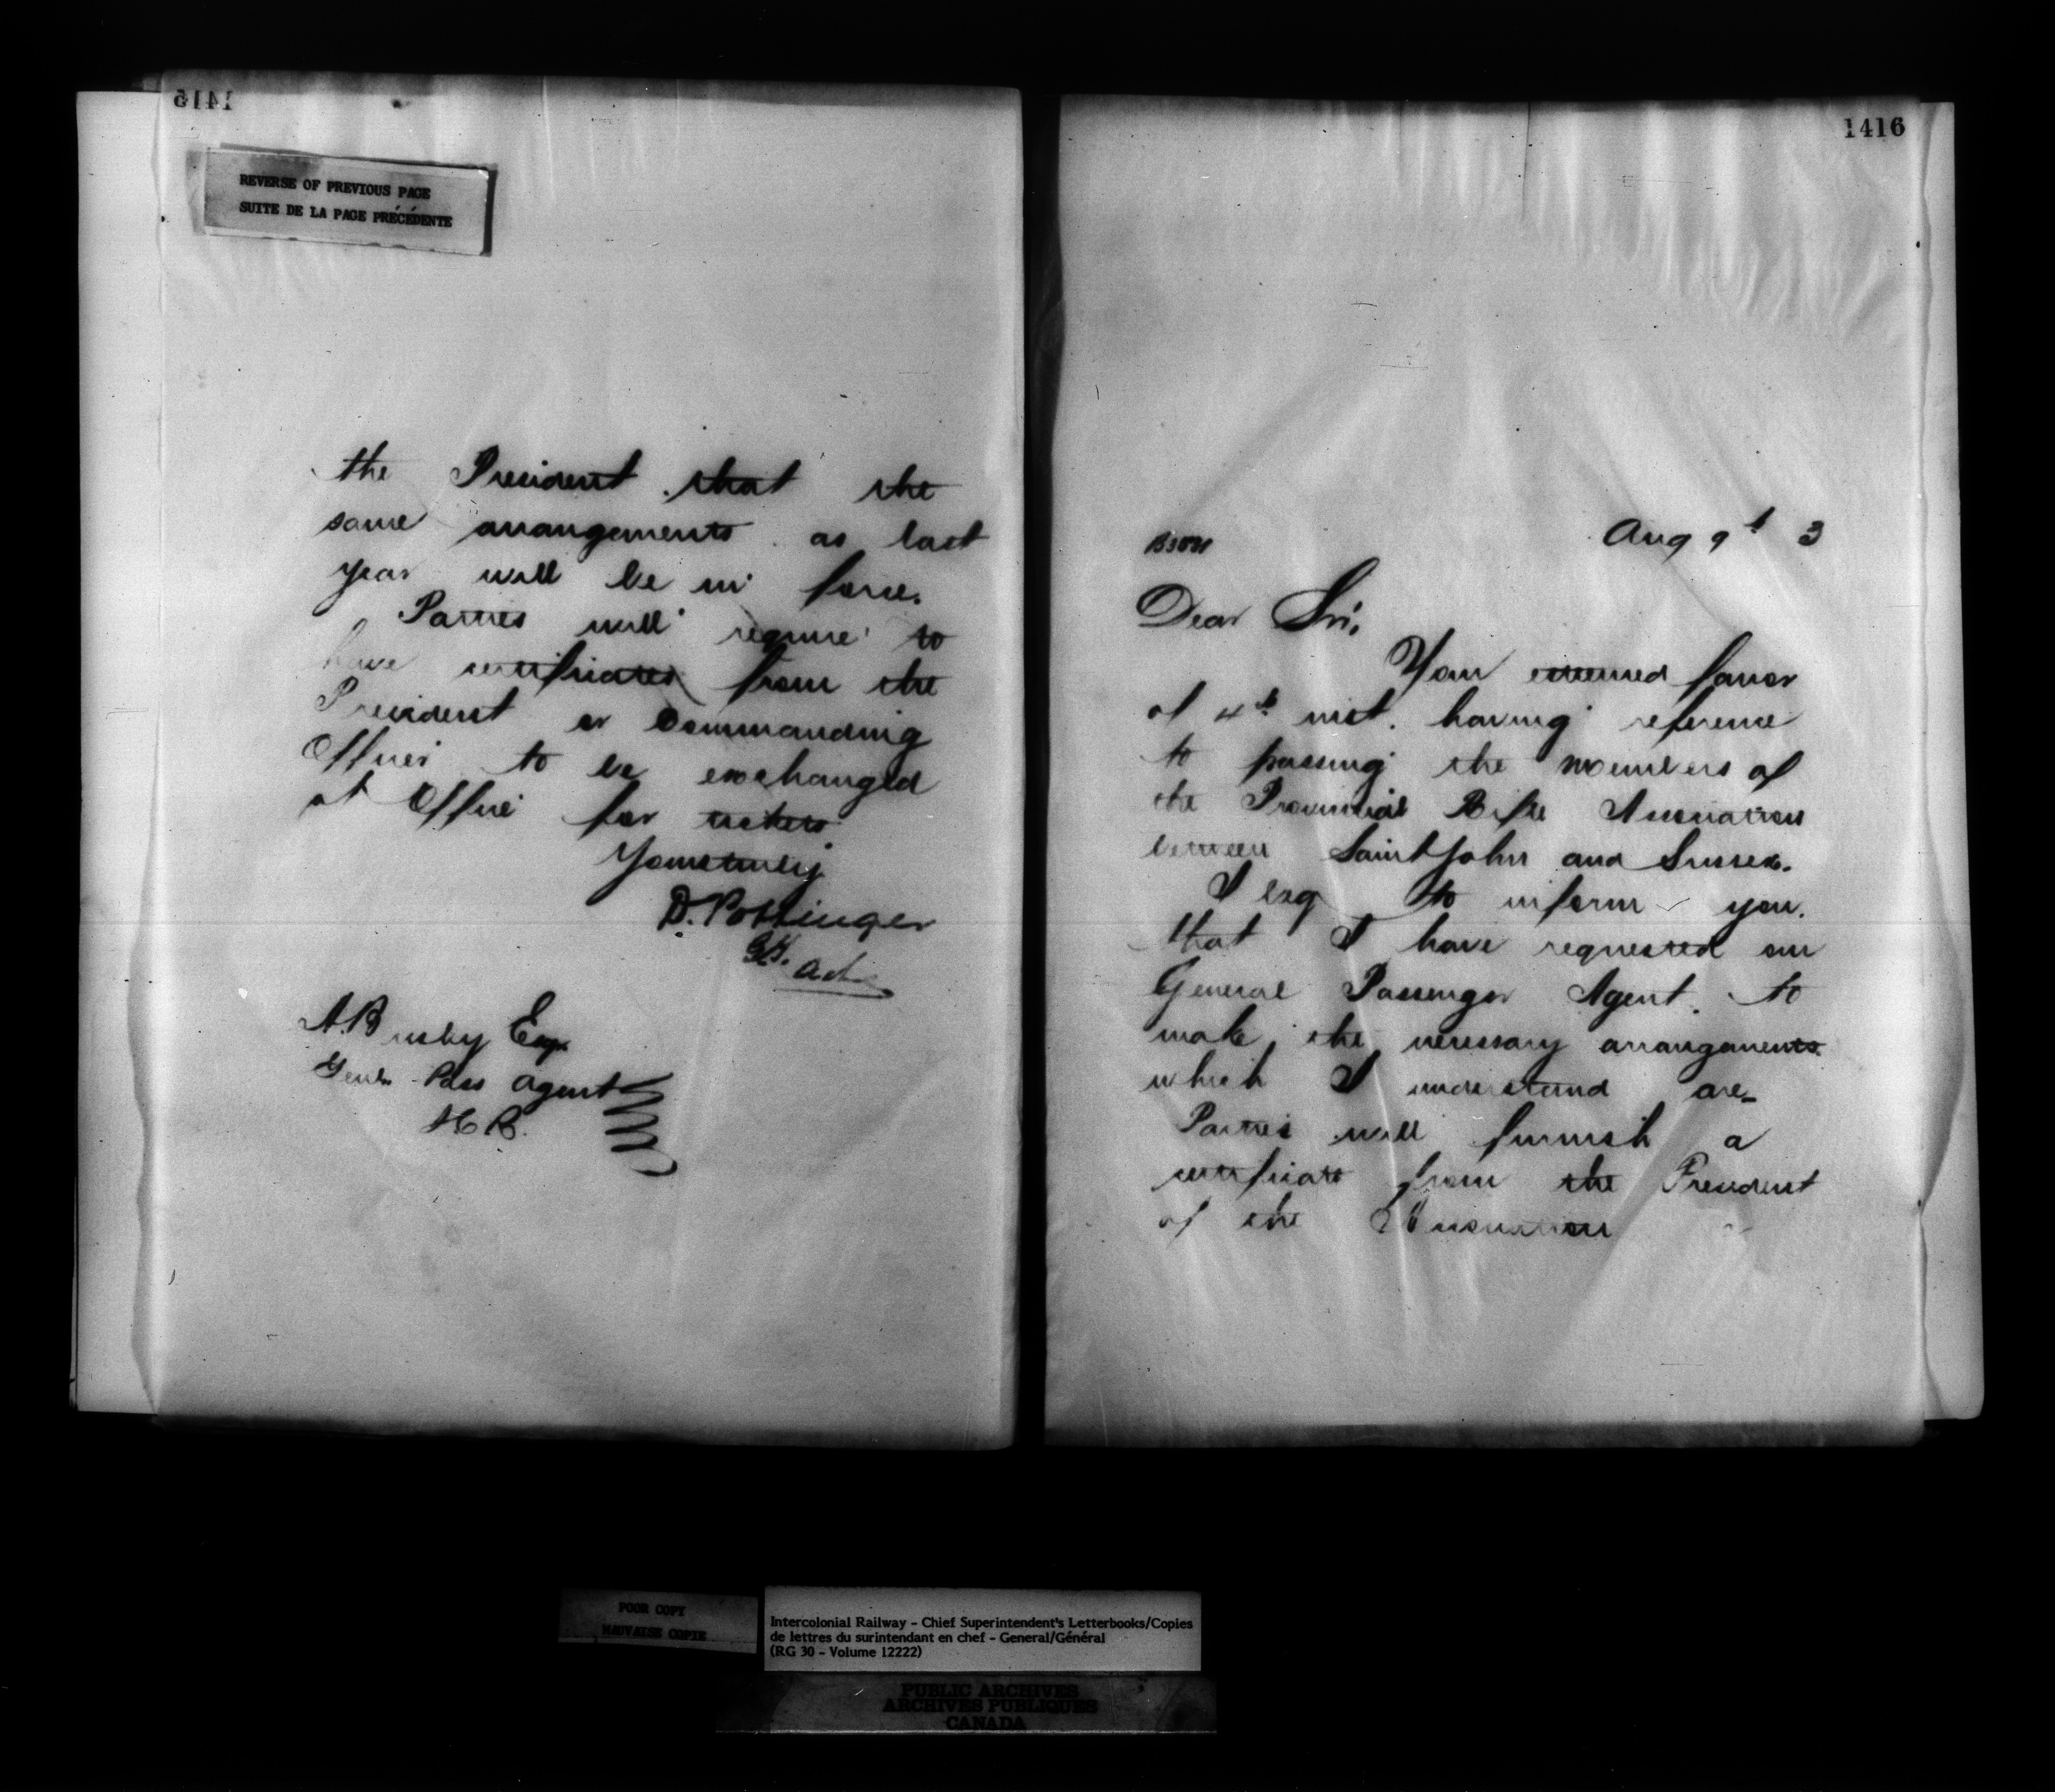 1415
REVERSE OF PREVIOUS PAGE
SUITE DE LA PAGE PRÉCÉDENTE
the President that the
same arrangements as last
year will be in force.
Parties will require to
have certificates from the
President or Commanding
Officer to be exchanged
at Office for tickets
Yours truly
D. Pottinger
A. Busby Esq
Genl Pass Agent
1416
Aug 9th 3
Dear Sir,
Your esteemed favor
of 4th inst. having reference
to passing the members of
the Provincial Rifle Association
between Saint John and Sussex.
I beg to inform you.
that I have requested our
General Passenger Agent. to
make the necessary arrangements
which I understand are-
Parties will furnish a
certificate from the President
of the Association
POOR COPY
MAUVAISE COPIE
Intercolonial Railway - Chief Superintendent's Letterbooks/Copies
de lettres du surintendant en chef - General/Général
(RG 30 - Volume 12222)
PUBLIC ARCHIVES
ARCHIVES PUBLIQUES
CANADA